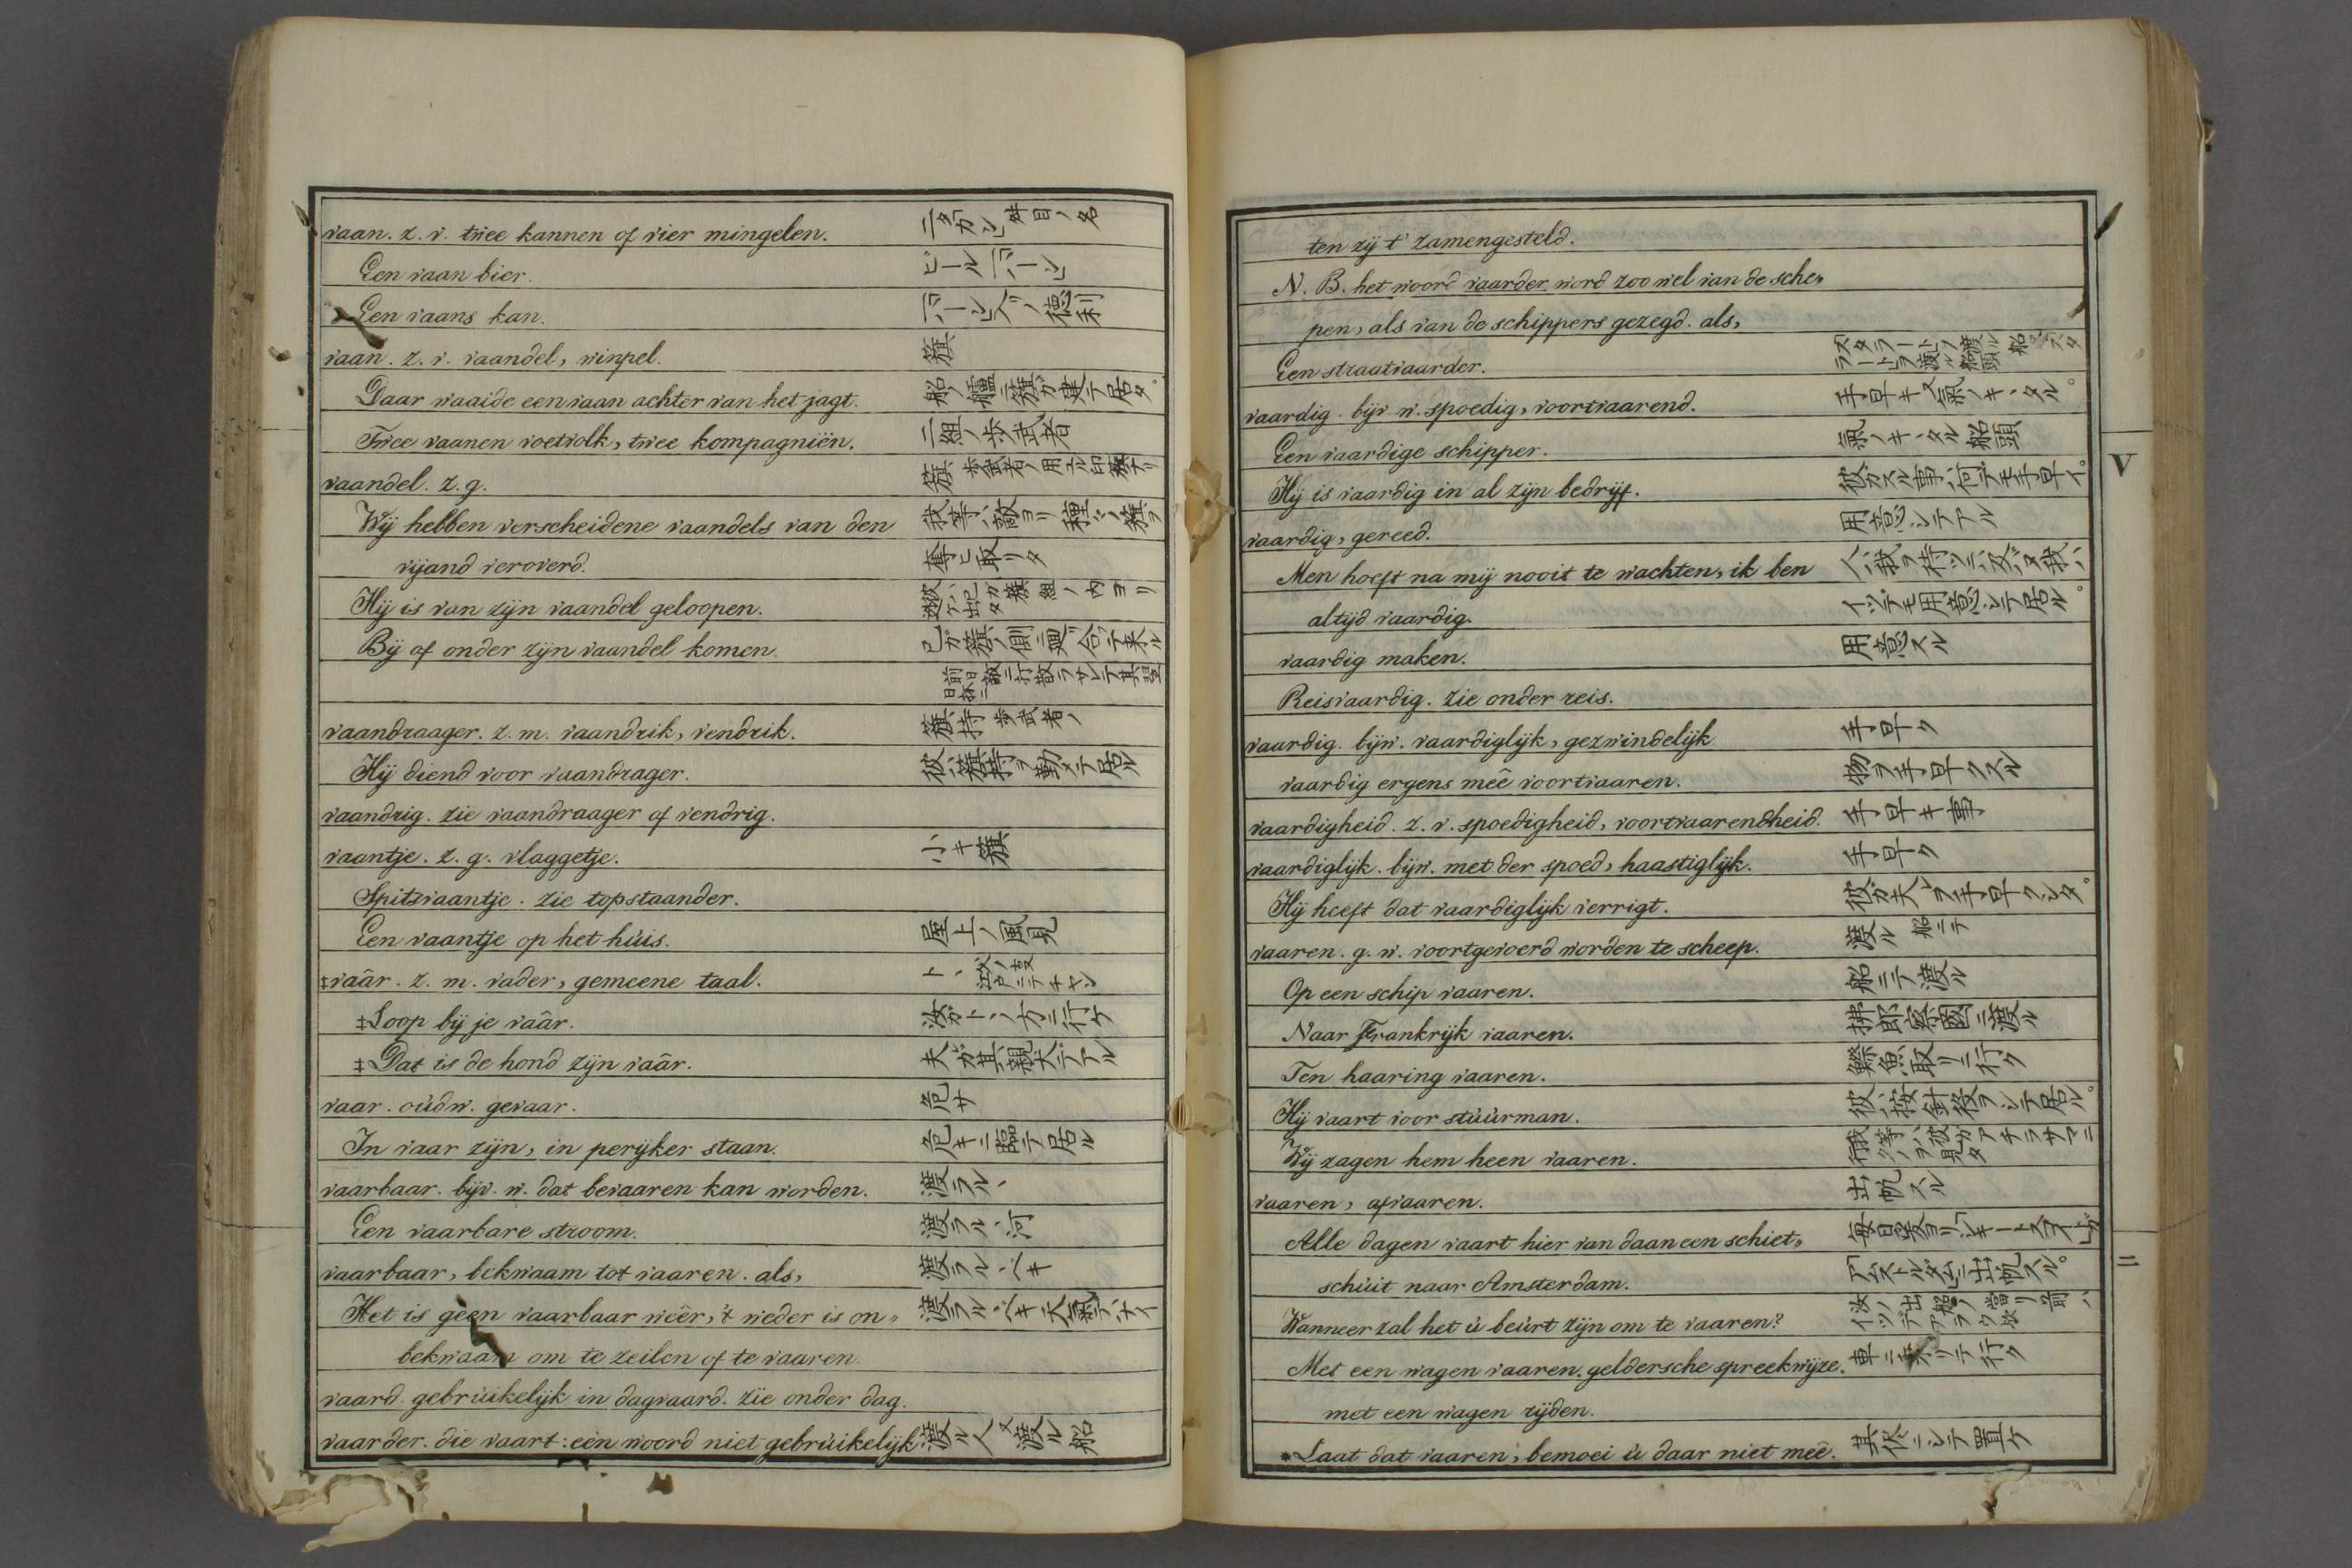 vaan. z. v. twee kannen of vier mingelen. 二タカン 舛目ノ名
Een vaan bier. ビール一ハーン
Een vaans kan. 一ハーンズノ徳利
vaan. z. v. vaandel, winpel. 籏
Daar waaide een vaan achter van het jagt. 船ノ艫ニ籏ガ建テ居タ。
Twee vaanen voetvolk, twee kompagniën. 二組ノ歩武者
vaandel. z. g. 籏 歩武者ノ用ユル印籏ナリ
Wij hebben verscheidene vaandels van den 我等ハ敵ヨリ種々ノ籏ヲ
vijand veroverd. 奪ヒ取リタ
Hij is van zijn vaandel geloopen. 彼ハ己ガ籏組ノ内ヨリ逃ケ出タ
Bij of onder zijn vaandel komen. 己ガ籏ノ側ニ廻合テ来ル
前日敵ニ打散ラサレテ其翌日抔ニ
vaandraager. z. m. vaandrik, vendrik. 籏持 歩武者ノ
Hij diend voor vaandrager. 彼ハ籏持ヲ勤メテ居ル
vaandrig. zie vaandraager of vendrig.
vaantje. z. g. vlaggetje. 小キ籏
Spitsvaantje. zie topstaander.
Een vaantje op het húis. 屋上ノ風見
‡vaâr. z. m. vader, gemeene taal.
‡Loop bij je vaâr. 汝ガトヽノ方ニ行ケ
‡Dat is de hond zijn vaâr. 夫ガ其親犬デアル
vaar. oúdw. gevaar. 危サ
In vaar zijn, in perijker staan. 危キニ臨テ居ル
vaarbaar. bijv. w. dat bevaaren kan worden. 渡ラルヽ
Een vaarbare stroom. 渡ラルヽ河
vaarbaar, bekwaam tot vaaren. als, 渡ラルヽベキ
Het is geen vaarbaar weêr, 't weder is on„ 渡ラルヽベキ天氣デナイ
bekwaam om te zeilen of te vaaren.
vaard gebrúikelijk in dagvaard. zie onder dag.
vaarder. die vaart: een woord niet gebrúikelijk 渡ル人 又渡ル船
ten zij t' zamengesteld.
N. B. het woord vaarder word zoo wel van de sche„
pen, als van de schippers gezegd. als,
Een straatvaarder. スタラートヲ渡ル船 スタラートヲ渡ル船頭
vaardig. bijv. w. spoedig, voortvaarend. 手早キ 又氣ノキヽタル。
Een vaardige schipper. 氣ノキヽタル船頭
Hij is vaardig in al zijn bedrijf. 彼ガスル事ハ何デモ手早イ。
vaardig, gereed. 用意シテアル
Men hoeft na mij nooit te wachten, ik ben 人ハ我ヲ待ツニ及バヌ我ハ
altijd vaardig. イツデモ用意シテ居ル。
vaardig maken. 用意スル
Reisvaardig. zie onder reis.
vaardig. bijw. vaardiglijk, gezwindelijk 手早ク
vaardig ergens meê voortvaaren. 物ヲ手早クスル
vaardigheid. z. v. spoedigheid, voortvaarendheid. 手早キ事
vaardiglijk. bijw. met der spoed, haastiglijk. 手早ク
Hij heeft dat vaardiglijk verrigt. 彼ガ夫ヲ手早クシタ。
vaaren. g. w. voortgevoerd worden te scheep. 渡ル 船ニテ
Op een schip vaaren. 船ニテ渡ル
Naar Frankrijk vaaren. 拂郎察國ニ渡ル
Ten haaring vaaren. 魚取リニ行ク
Hij vaart voor stúúrman. 彼ハ按針役ヲシテ居ル。
Wij zagen hem heen vaaren. 我等ハ彼ガアチラサマニ行クヲ見タ
vaaren, afvaaren. 出帆スル
Alle dagen vaart hier van daan een schiet„ 毎日爰ヨリ
schúit naar Amsterdam. アムストルダムニ出帆スル。
Wanneer zal het ú beúrt zijn om te vaaren? 汝ノ出船ノ當リ前ハイツデアラウ
Met een wagen vaaren. geldersche spreekwijze. 車ニ乗リテ行ク
met een wagen rijden.
*Laat dat vaaren, bemoei ú daar niet meê. 其侭ニシテ置ケ
V
二